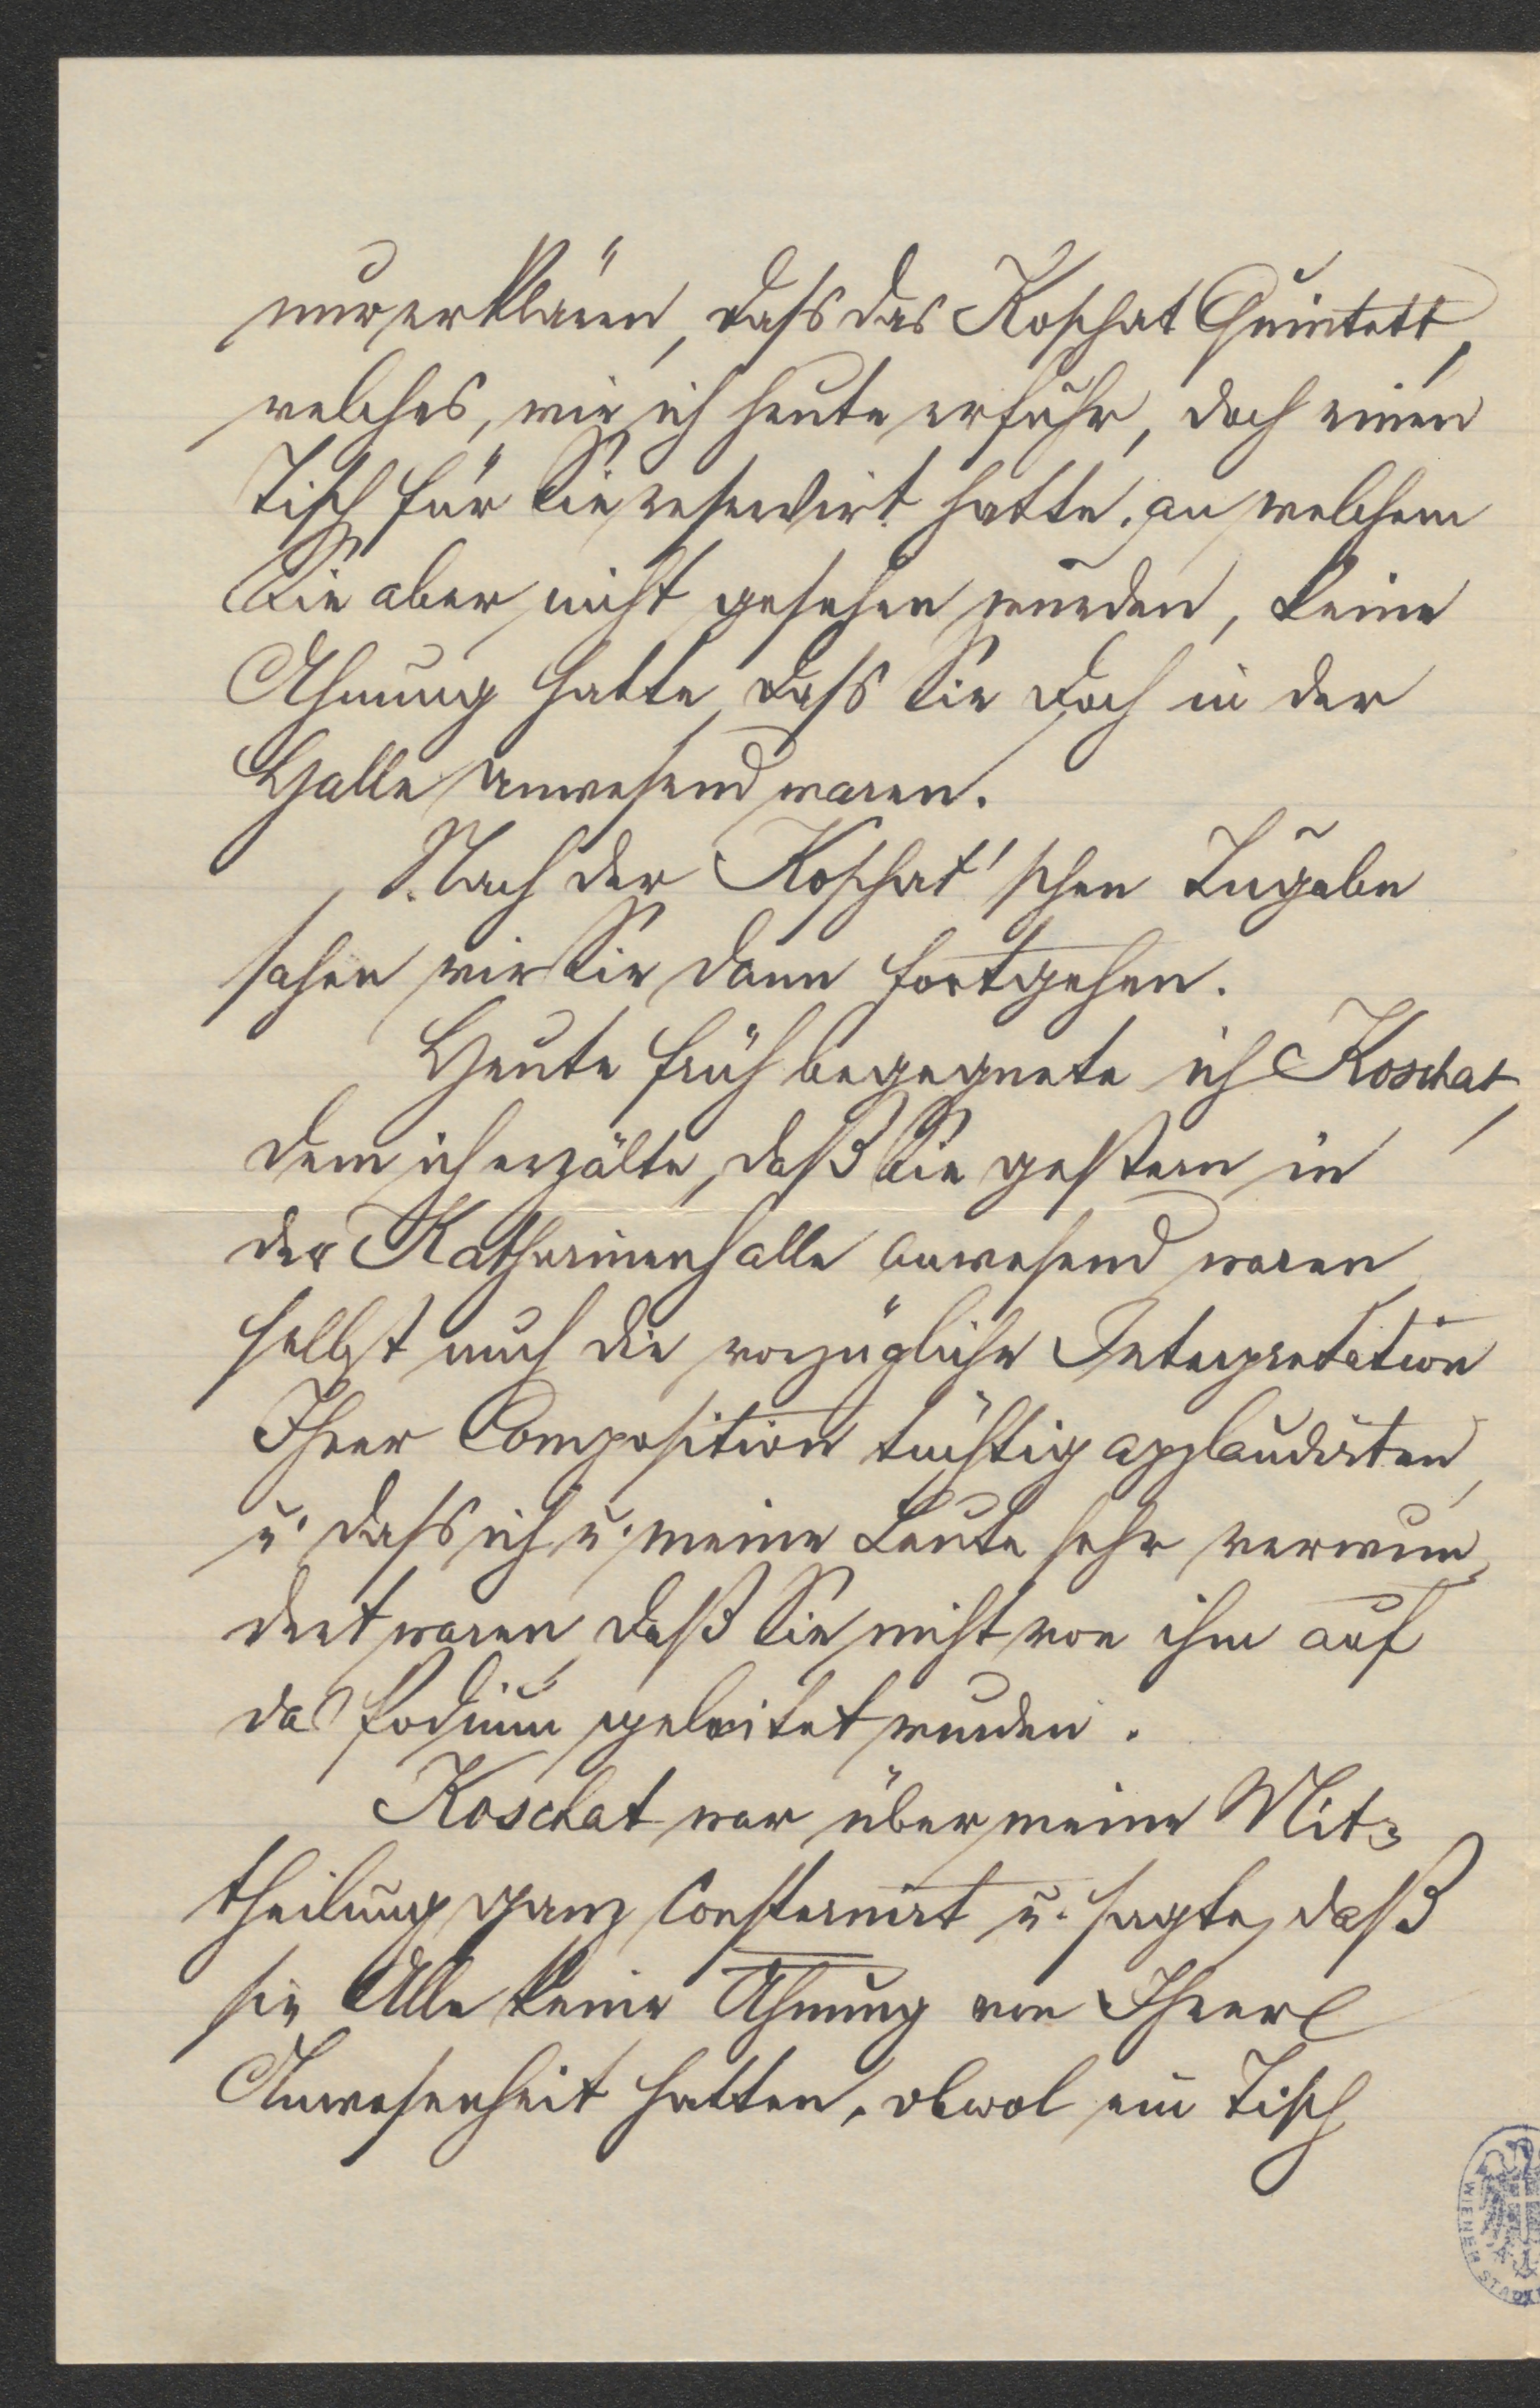 nur erklären, dass das Koschat Quintett,
welches, wie ich heute erfuhr, doch einen
Tisch für Sie reservirt hatte, an welchem
Sie aber nicht gesehen wurden, keine
Ahnung hatte, dass Sie doch in der
Halle anwesend waren.
Nach der Koschat'schen Zugabe
sahen wir Sie dann fortgehen.
Heute früh begegnete ich Koschat,
dem ich erzälte, daß Sie gestern in
der Katharinenhalle anwesend waren,
selbst auch die vorzügliche Interpretation
Ihrer Composition tüchtig applaudirten,
u. dass ich u. meine Leute sehr verwun-
dert waren, daß Sie nicht von ihm auf
das Podium geleitet wurden.
Koschat war über meine Mit-
theilung ganz consternirt u. sagte, daß
sie Alle keine Ahnung von Ihrer
Anwesenheit hatten, obwol ein Tisch
WIENER STADT